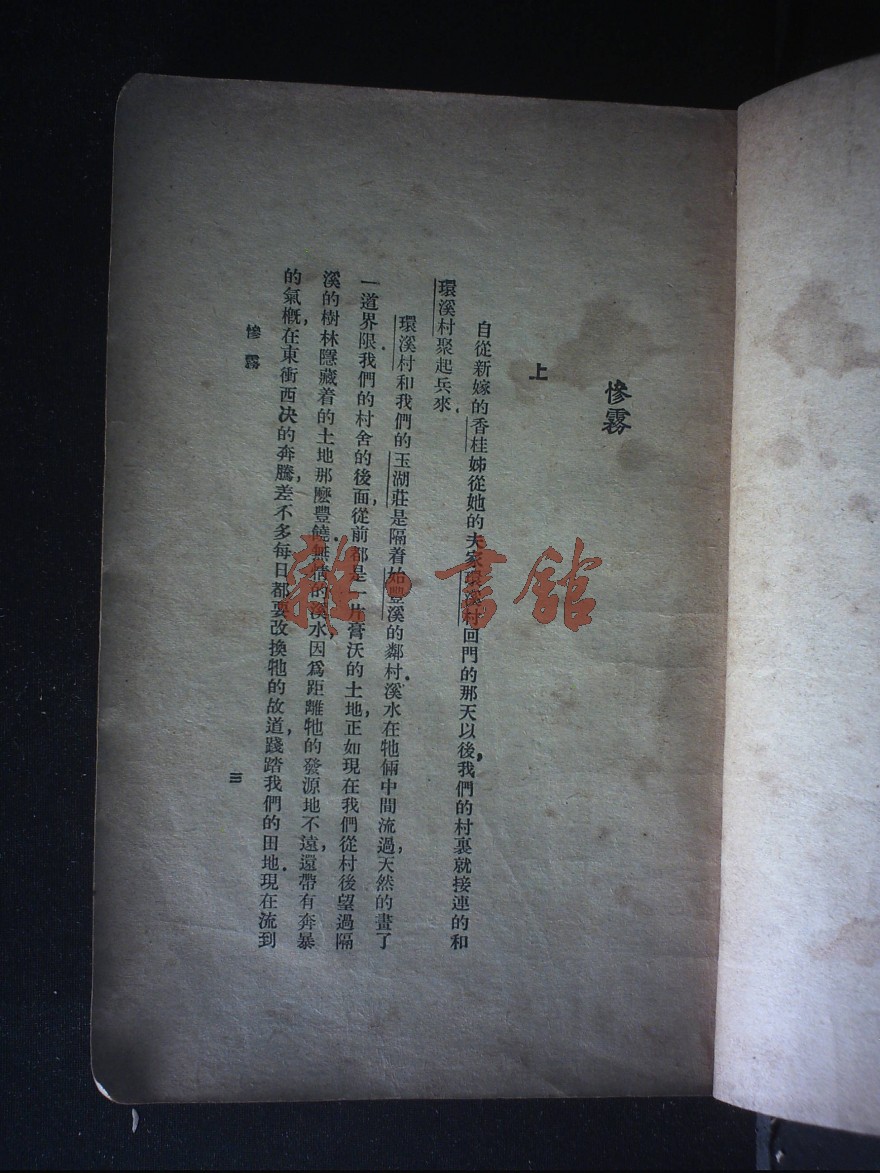 慘霧
上
自從新嫁的香桂姊從她的夫家環溪村回門的那天以後，我們的村裏就接連的和
環溪村聚起兵來．
環溪村和我們的玉湖莊是隔着始豐溪的鄰村．溪水在牠倆中間流過，天然的畫了
一道界限．我們的村舍的後面，從前都是一片膏沃的土地，正如現在我們從村後望過隔
溪的樹林隱藏着的土地那麼豐饒．無情的溪水，因爲距離牠的發源地不遠，還帶有奔暴
的氣槪，在東衝西决的奔騰，差不多每日都要改換牠的故道，踐踏我們的田地．現在流到
慘霧
三
雜·書館